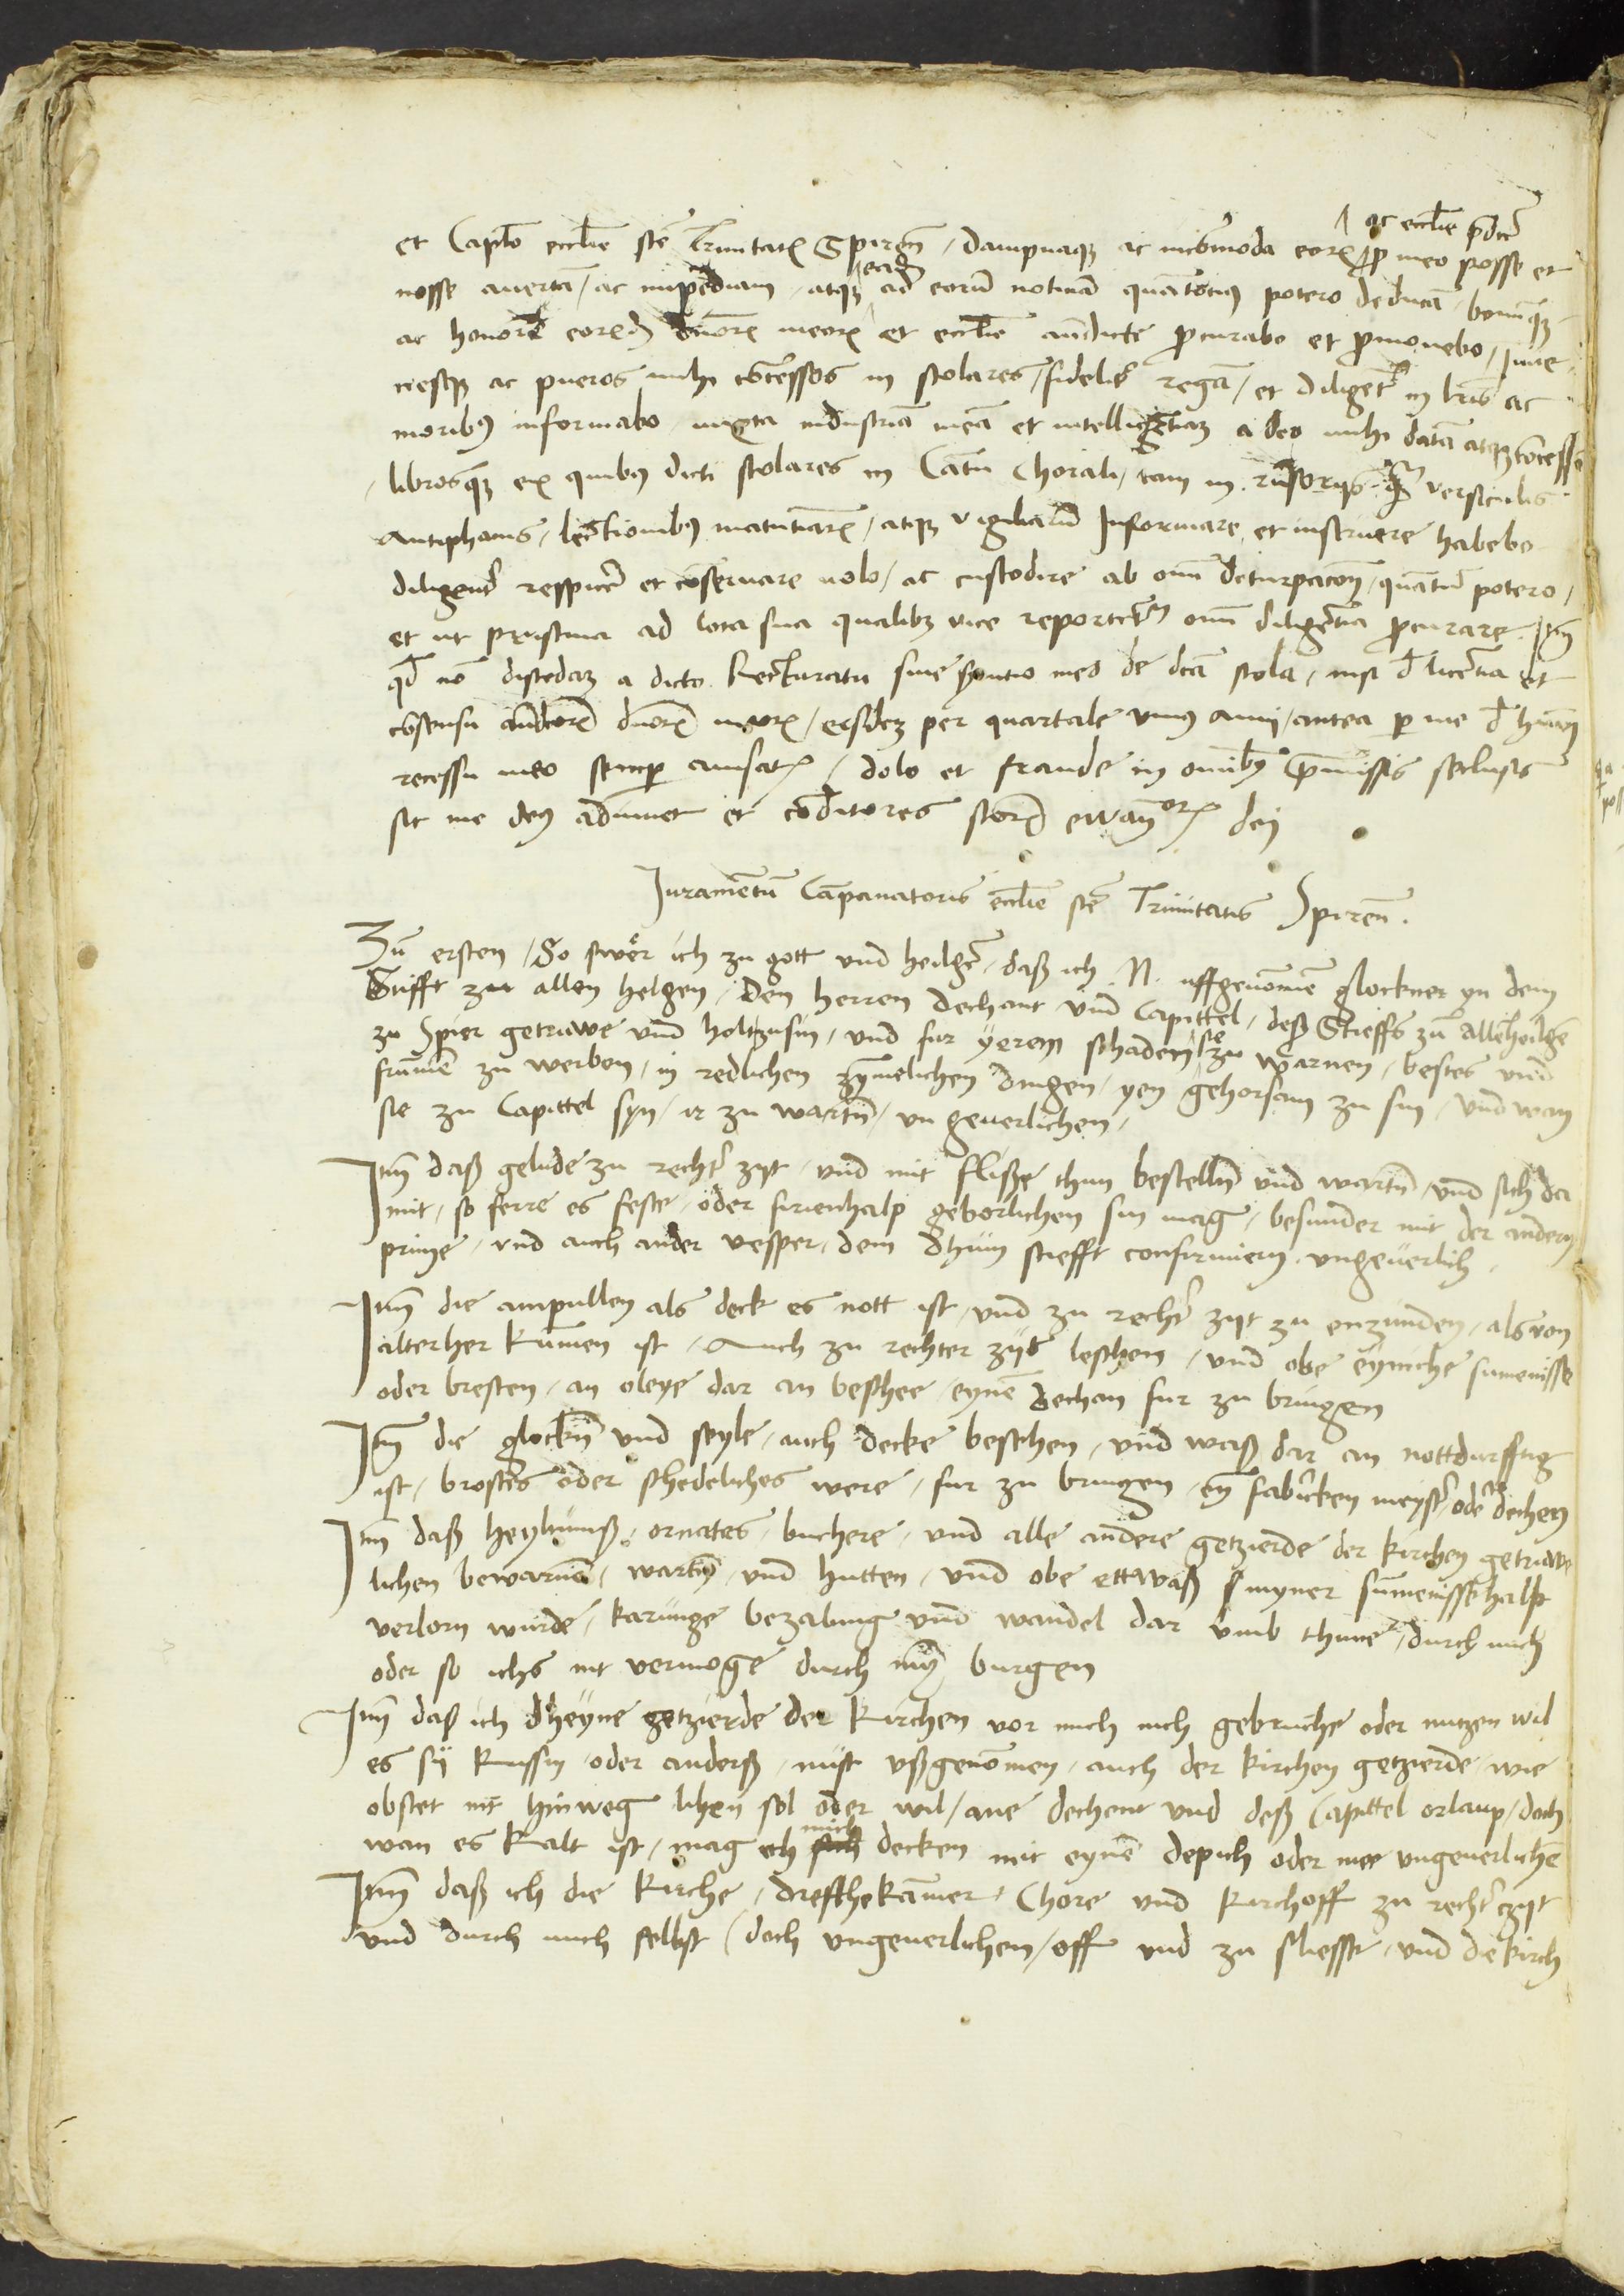 ac eccl̄ie p̄dcē
et Caplō eccl̄ie sctē Trinitatꝭ Spireñ / dampnaqȝ ac incōmoda eorꝝ pro meo posse et
nosse auertā / ac impediam / atqȝ ea ad eorū noticiā quātocius potero deducā / bonūqȝ
ac honorē eorꝝ dn̄orꝝ meorꝝ et eccl̄ie an̄dicte ꝓcurabo et ꝓmouebo / Iuue
nesqȝ ac pueros mihi cōcessos in scolares / fideliter regā / et diligēter in l̄ris ac
moribus informabo iuxta industriā meā et intelligētiaȝ a deo mihi datā atqȝ cōcessā
libros qȝ ex quibus dicti scolares in Cātu chorali / tam in versiculis
Antiphonis / lectionibus matutinarꝝ / atqȝ vigiliarū Informare et instruere habebo
diligenter respicere et cōseruare uolo / ac custodire ab omni deturpacōne quātum potero /
et ut pristina ad loca sua qualibȝ vice reportētur omni diligētia ꝓcurare Itm̄
qd nō discedaȝ a dicto Rectoratu siue seruitio meo de dcā scola / nisi de licētia et
cōsensu an̄dcorꝝ dn̄orꝝ meorꝝ / eisdeȝ per quartale vnius anni / antea per me de huiūsi
recessu meo semper auisatꝭ / dolo et fraude in omnibus p̄missis seclusis
sic me deus adiuuet et cōditores sctorꝝ ewāgꝝ dei
Iuramētum Cāpanatoris eccl̄ie sctē Trinitatis Spireñ.
Zū ersten / So swer ich zu gott vnd heilgē / daß ich N. uffgenōmē glockner yn dem
Stifft zu allen helgen / Den herren Dechant vnd Capittel / deß Stieffs zū Allēheilgē
zu Spier getruwe vnd holt zusin / vnd fur yerem schaden sie zu warnen / bestes vnd
frūmē zu werben / in redlichen zymelichen dingen / yen gehorsam zu sin / vnd wan
sie zu Capittel syn / ir zu wartn̄ / vngeuerlichen /
Itm̄ daß gelude zu rechter zyt / vnd mit fliße thun bestelln̄ vnd wartn̄ / vnd sich da
mit / so ferre es feste / oder firienhalp geborlichen sin mag / besunder mit der andern
prime / vnd auch ander vesper / dem dhum stiefft confirmiern vngeuerlich /
Itm̄ die ampullen als deck es nott ist / vnd zu rechter zyt zu enzunden / als von
alterher kūmen ist / Auch zu rechter zyt leschen / vnd obe eyniche sumenisse
oder bresten / an oleye dar an beschee / eynē dechan fur zu bringen
Itm̄ die glockn̄ vnd seyle / auch decke besehen / vnd waß dar an nottdurfftig
ist / brostes oder schedeliches were / fur zu bringen / eyn fabricken meyster oder dechen
Itm̄ daß heyltumß / ornates / buchere / vnd alle andere getzierde der kirchen getruwe
lichen bewarnn̄ / wartn̄ / vnd hutten / vnd obe ettwaß smyner sūmenissehalp
verlorn wurde / karunge bezalung vnd wandel dar vmb thune / durch mich
oder so ichs nit vermoge durch myn burgen
Itm̄ daß ich dheyne getzierde der kirchen vor mich nich gebruche oder nutzen wil
es sy kussin oder anderß / nust vßgenōmen / auch der kirchen getzierde / wie
obstet nit hinweg lihen sol oder wil / ane dechent vnd deß Capittel orlaup / doch
wan es kalt ist / mag ich mich decken mit eynē depich oder mee vngeuerlichē
Itm̄ daß ich die kirche / dreskekāmer / Chore vnd kirchoff zu rechter zyt
vnd durch mich selbst (doch vngeuerlichen / off vnd zu sliesse / vnd die kirch